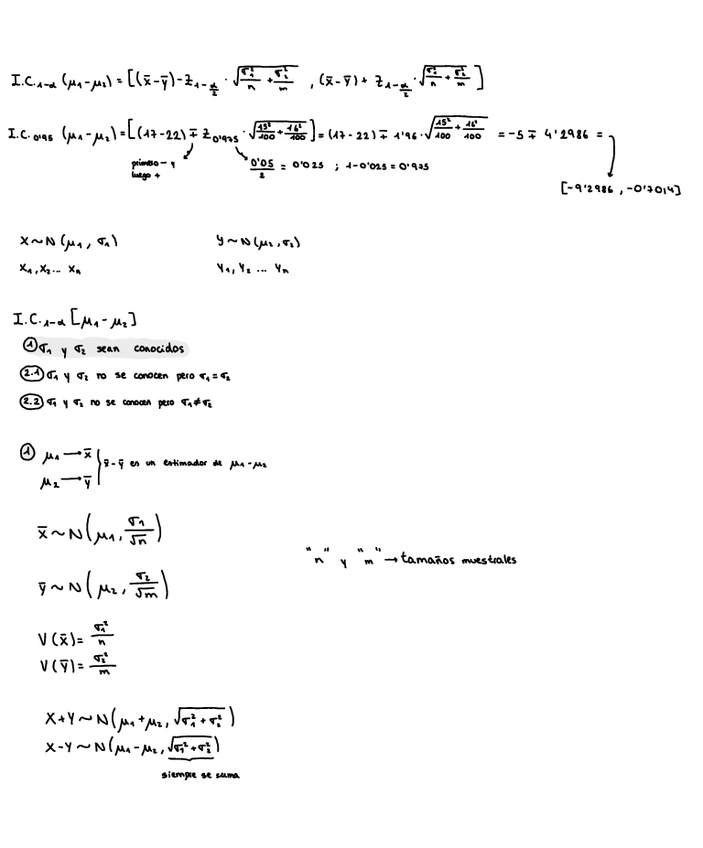 I.C.₁₋α (μ₁-μ₂) = [(x̄-ȳ)-Z₁₋α/₂ · √(σ₁²/n + σ₂²/m) , (x̄-ȳ) + Z₁₋α/₂ · √(σ₁²/n + σ₂²/m)]
I.C.₀'₉₅ (μ₁-μ₂) = [(17-22) ∓ Z₀'₉₇₅ · √(15²/100 + 16²/100)] = (17-22) ∓ 1'96 · √(15²/100 + 16²/100) = -5 ∓ 4'2986 =
primero - y
luego +
0'05/2 = 0'025 ; 1-0'025 = 0'975
[-9'2986 , -0'7014]
X ~ N(μ₁, σ₁)
Y ~ N(μ₂, σ₂)
X₁, X₂ ... Xn
Y₁, Y₂ ... Yn
I.C.₁₋α [μ₁-μ₂]
① σ₁ y σ₂ sean conocidos
2.1 σ₁ y σ₂ no se conocen pero σ₁ = σ₂
2.2 σ₁ y σ₂ no se conocen pero σ₁ ≠ σ₂
① μ₁ → x̄
μ₂ → ȳ
x̄-ȳ es un estimador de μ₁-μ₂
x̄ ~ N(μ₁, σ₁/√n)
"n" y "m" → tamaños muestrales
ȳ ~ N(μ₂, σ₂/√m)
V(x̄) = σ₁²/n
V(ȳ) = σ₂²/m
X+Y ~ N(μ₁+μ₂, √(σ₁²+σ₂²))
X-Y ~ N(μ₁-μ₂, √(σ₁²+σ₂²))
siempre se suma